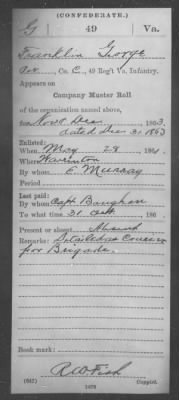 (CONFEDERATE.)
G 49 Va.
Franklin George
Co. C, 49 Reg't Va. Infantry.
Appears on
Company Muster Roll
of the organization named above,
for Nov & Dec, 1863.
dated Dec 31, 1863
Enlisted:
When May 28, 1861.
Where
By whom E. Murray
Period
Last paid:
By whom Capt Baughan
To what time 31 Oct, 186
Present or absent Absent
Remarks: Detailed as
for Brigade.
Book mark:
R.W. Fish
(642) Copyist.